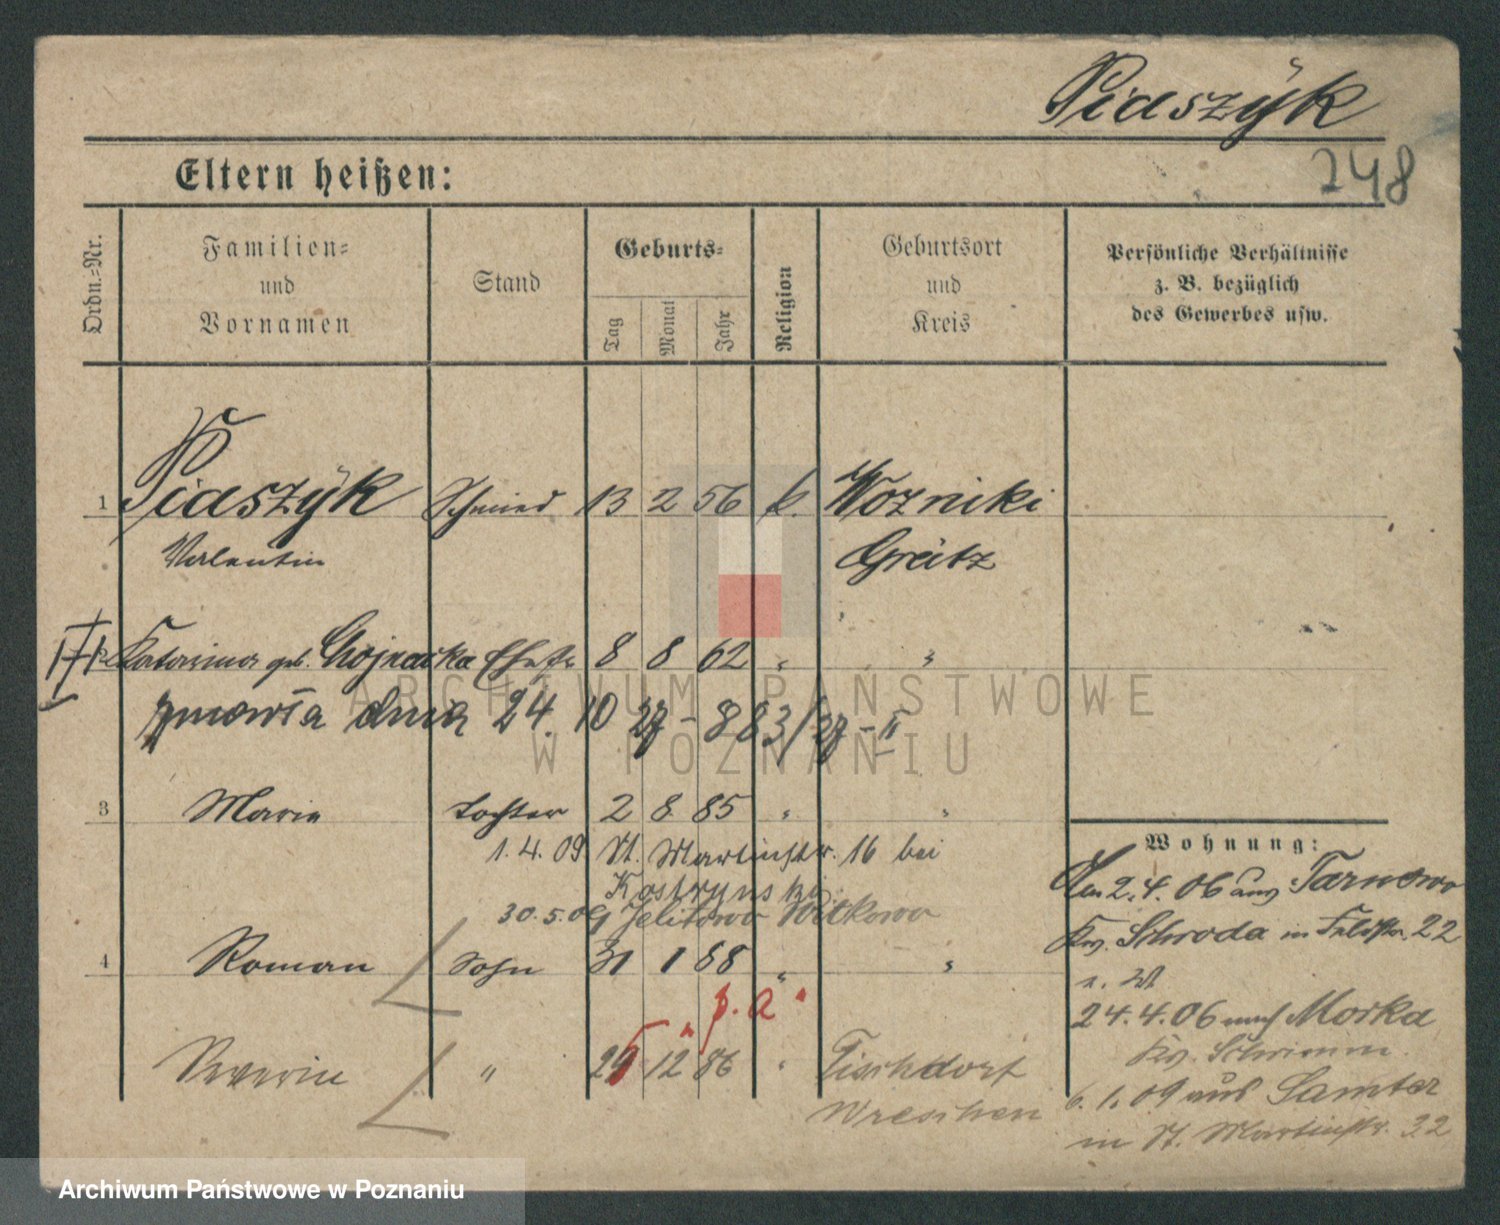 Piaszÿk
248
Eltern heißen:
Ordn.-Nr.
Familien-
und
Vornamen
Stand
Geburts-
Tag
Monat
Jahr
Religion
Geburtsort
und
Kreis
Persönliche Verhältnisse
z. B. bezüglich
des Gewerbes usw.
1 Piaszÿk Schmied 13 2 56 k. Wozniki
Valentin Grätz
Katarina geb. Chojnacka Ehefr 8 8 62 " "
zmarła dnia 24. 10
3 Marie Tochter 2 8. 85 " "
1. 4. 09 St. Martinstr. 16 bei
Kostrynski
30. 5. 09 Jelitowo Witkowo
4 Roman Sohn 31 1 88 " "
p. a
Severin " 12 86 " Tischdorf
Wreschen
Wohnung:
2. 4. 06 aus Tarnowo
Kr. Schroda in Feldstr. 22
24. 4. 06 nach Morka
Kr. Schrimm.
6. 1. 09 aus Samter
in St. Martinstr. 32
ARCHIWUM PAŃSTWOWE
W POZNANIU
Archiwum Państwowe w Poznaniu